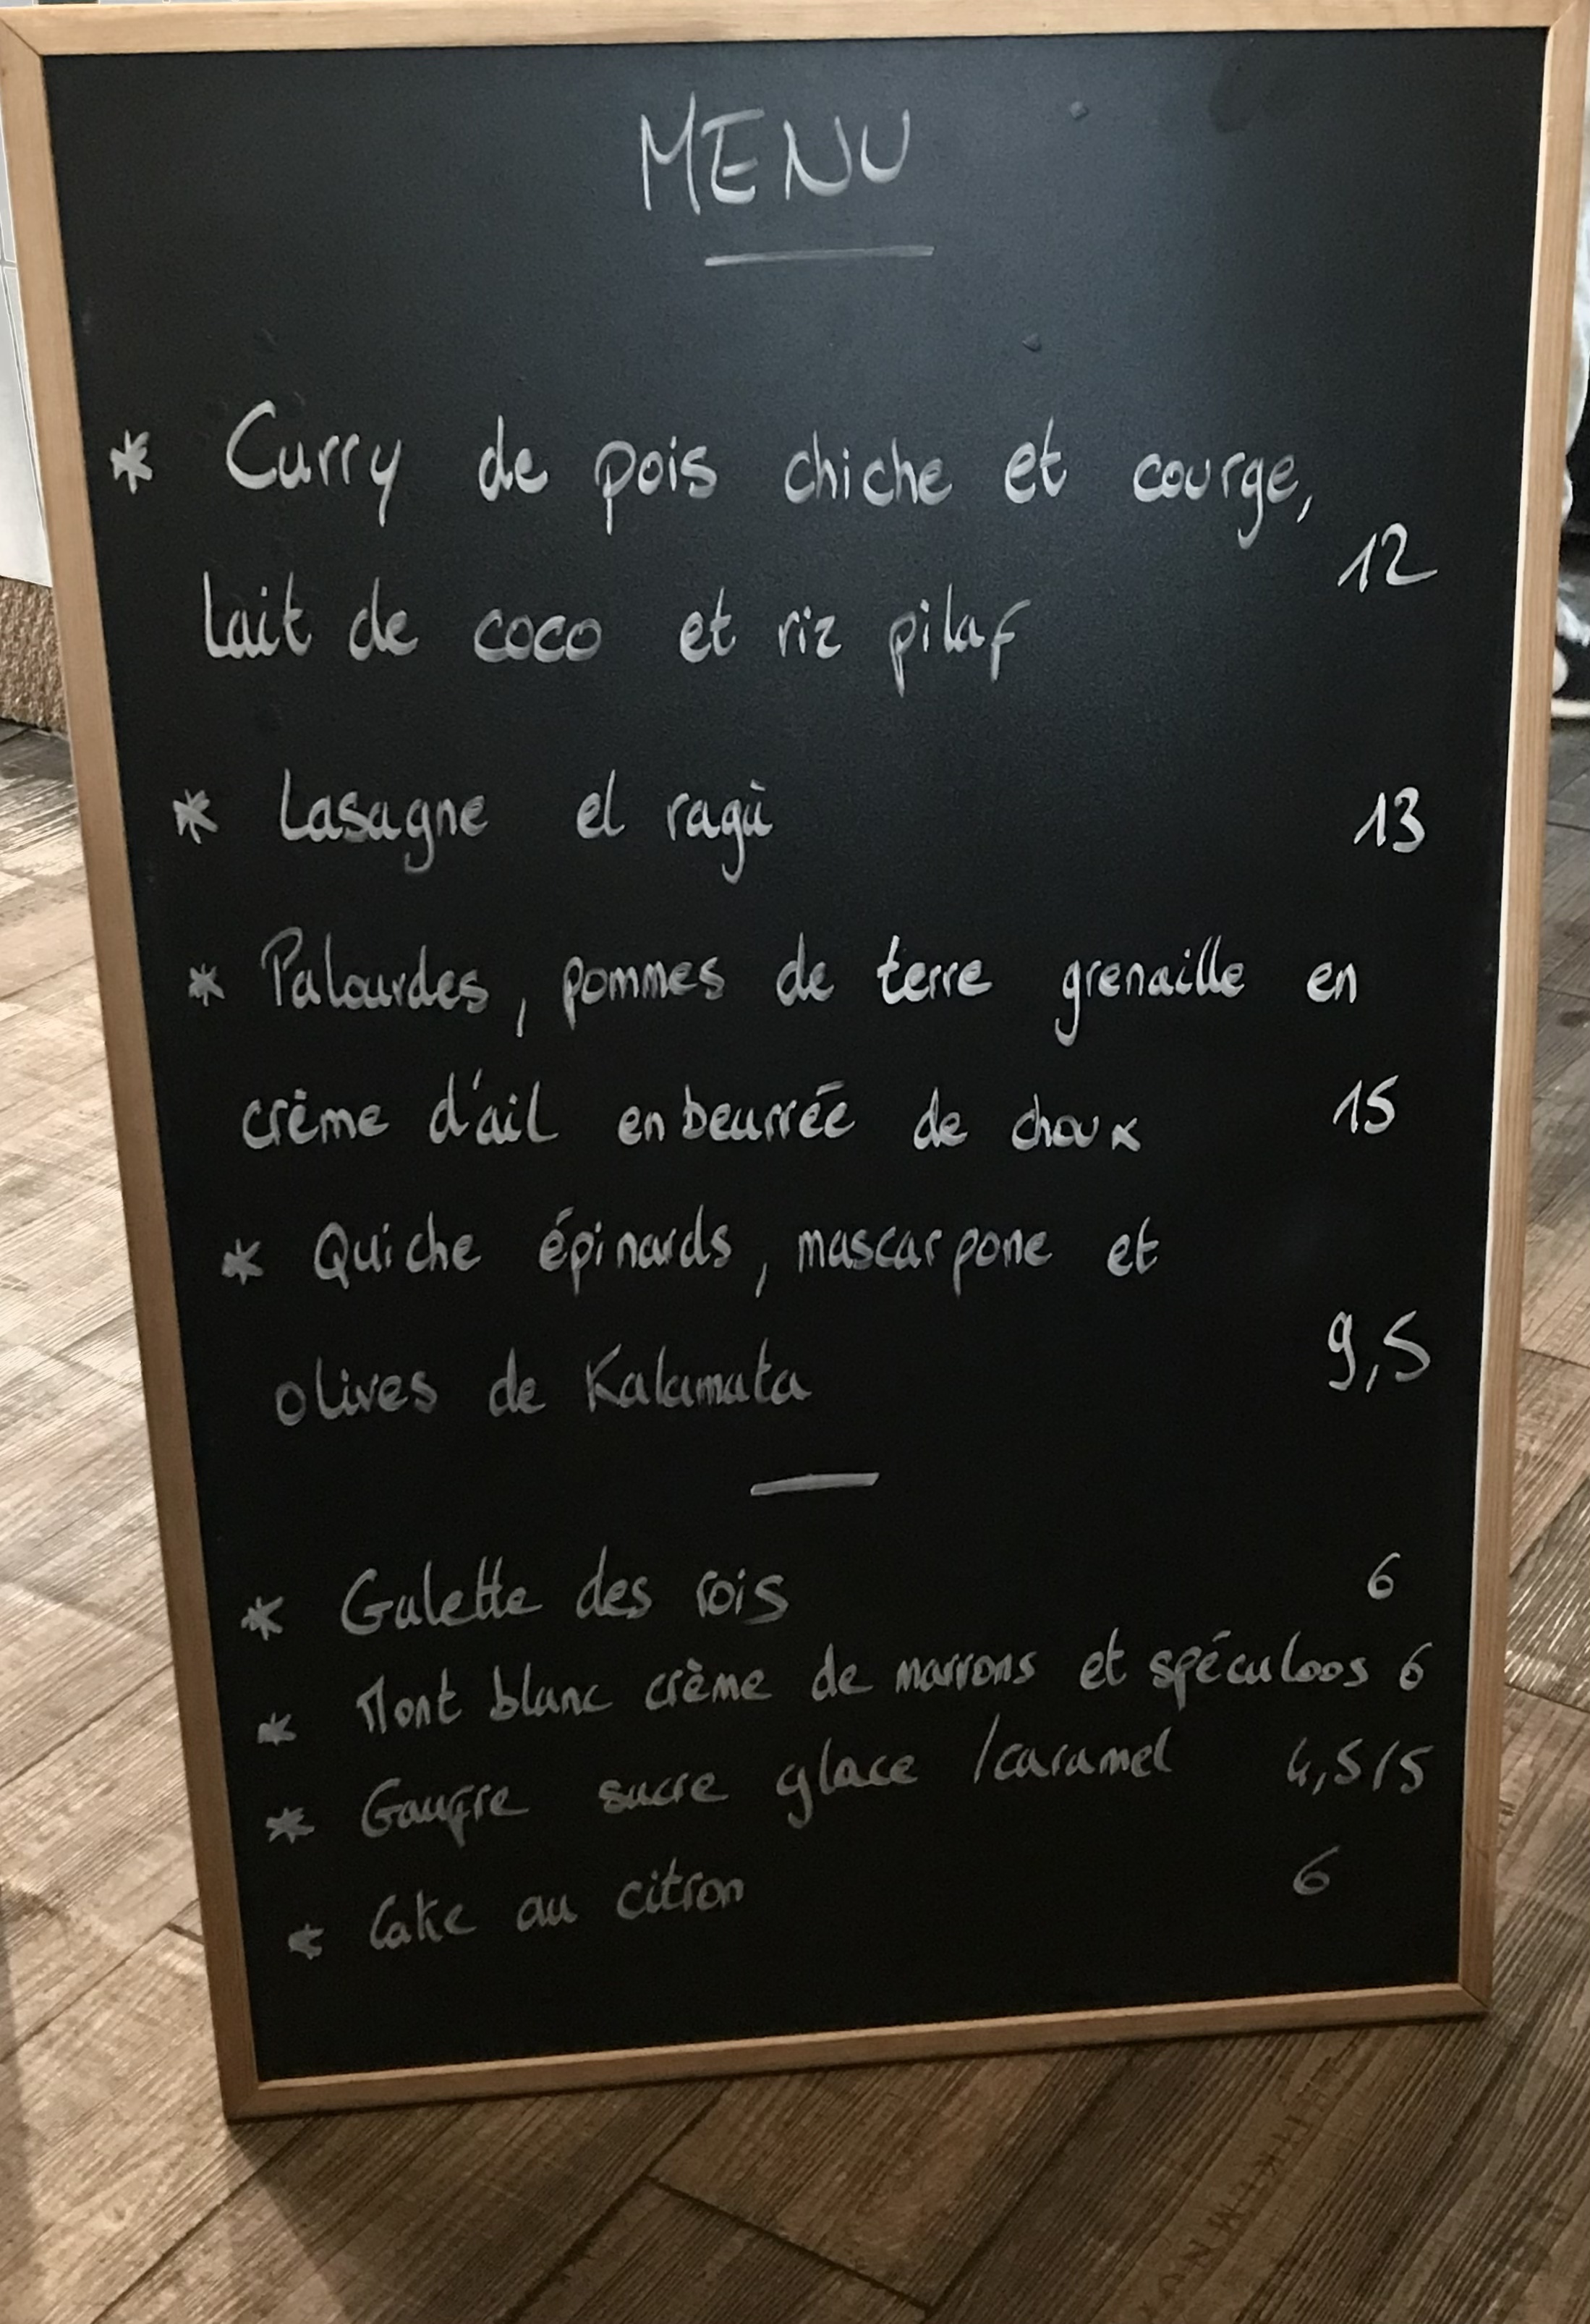 MENU
* Curry de pois chiche et courge,
12
lait de coco et riz pilaf
* Lasagne el ragù 13
* Palourdes, pommes de terre grenaille en
crème d'ail enbeurrée de choux 15
* Quiche épinards, mascarpone et
9,5
olives de Kalamata
* Galette des rois 6
* Mont blanc crème de marrons et spéculoos 6
* Gaufre sucre glace /caramel 4,5/5
* Cake au citron 6